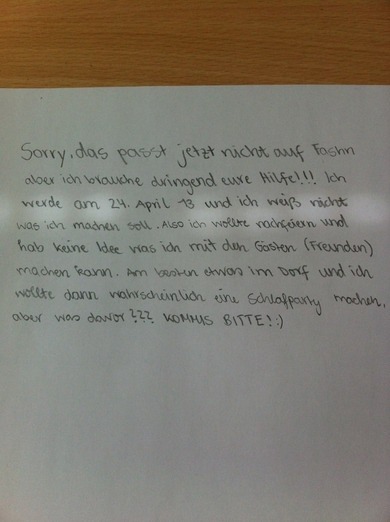 Sorry, das passt jetzt nicht auf Fashn
aber ich brauche dringend eure Hilfe!!! Ich
werde am 24. April 13 und ich weiß nicht
was ich machen soll. Also ich wollte nachfeiern und
hab keine Idee was ich mit den Gästen (Freunden)
machen kann. Am besten etwas im Dorf und ich
wollte dann wahrscheinlich eine Schlafparty machen,
aber was davor??? KOMMIS BITTE! :)